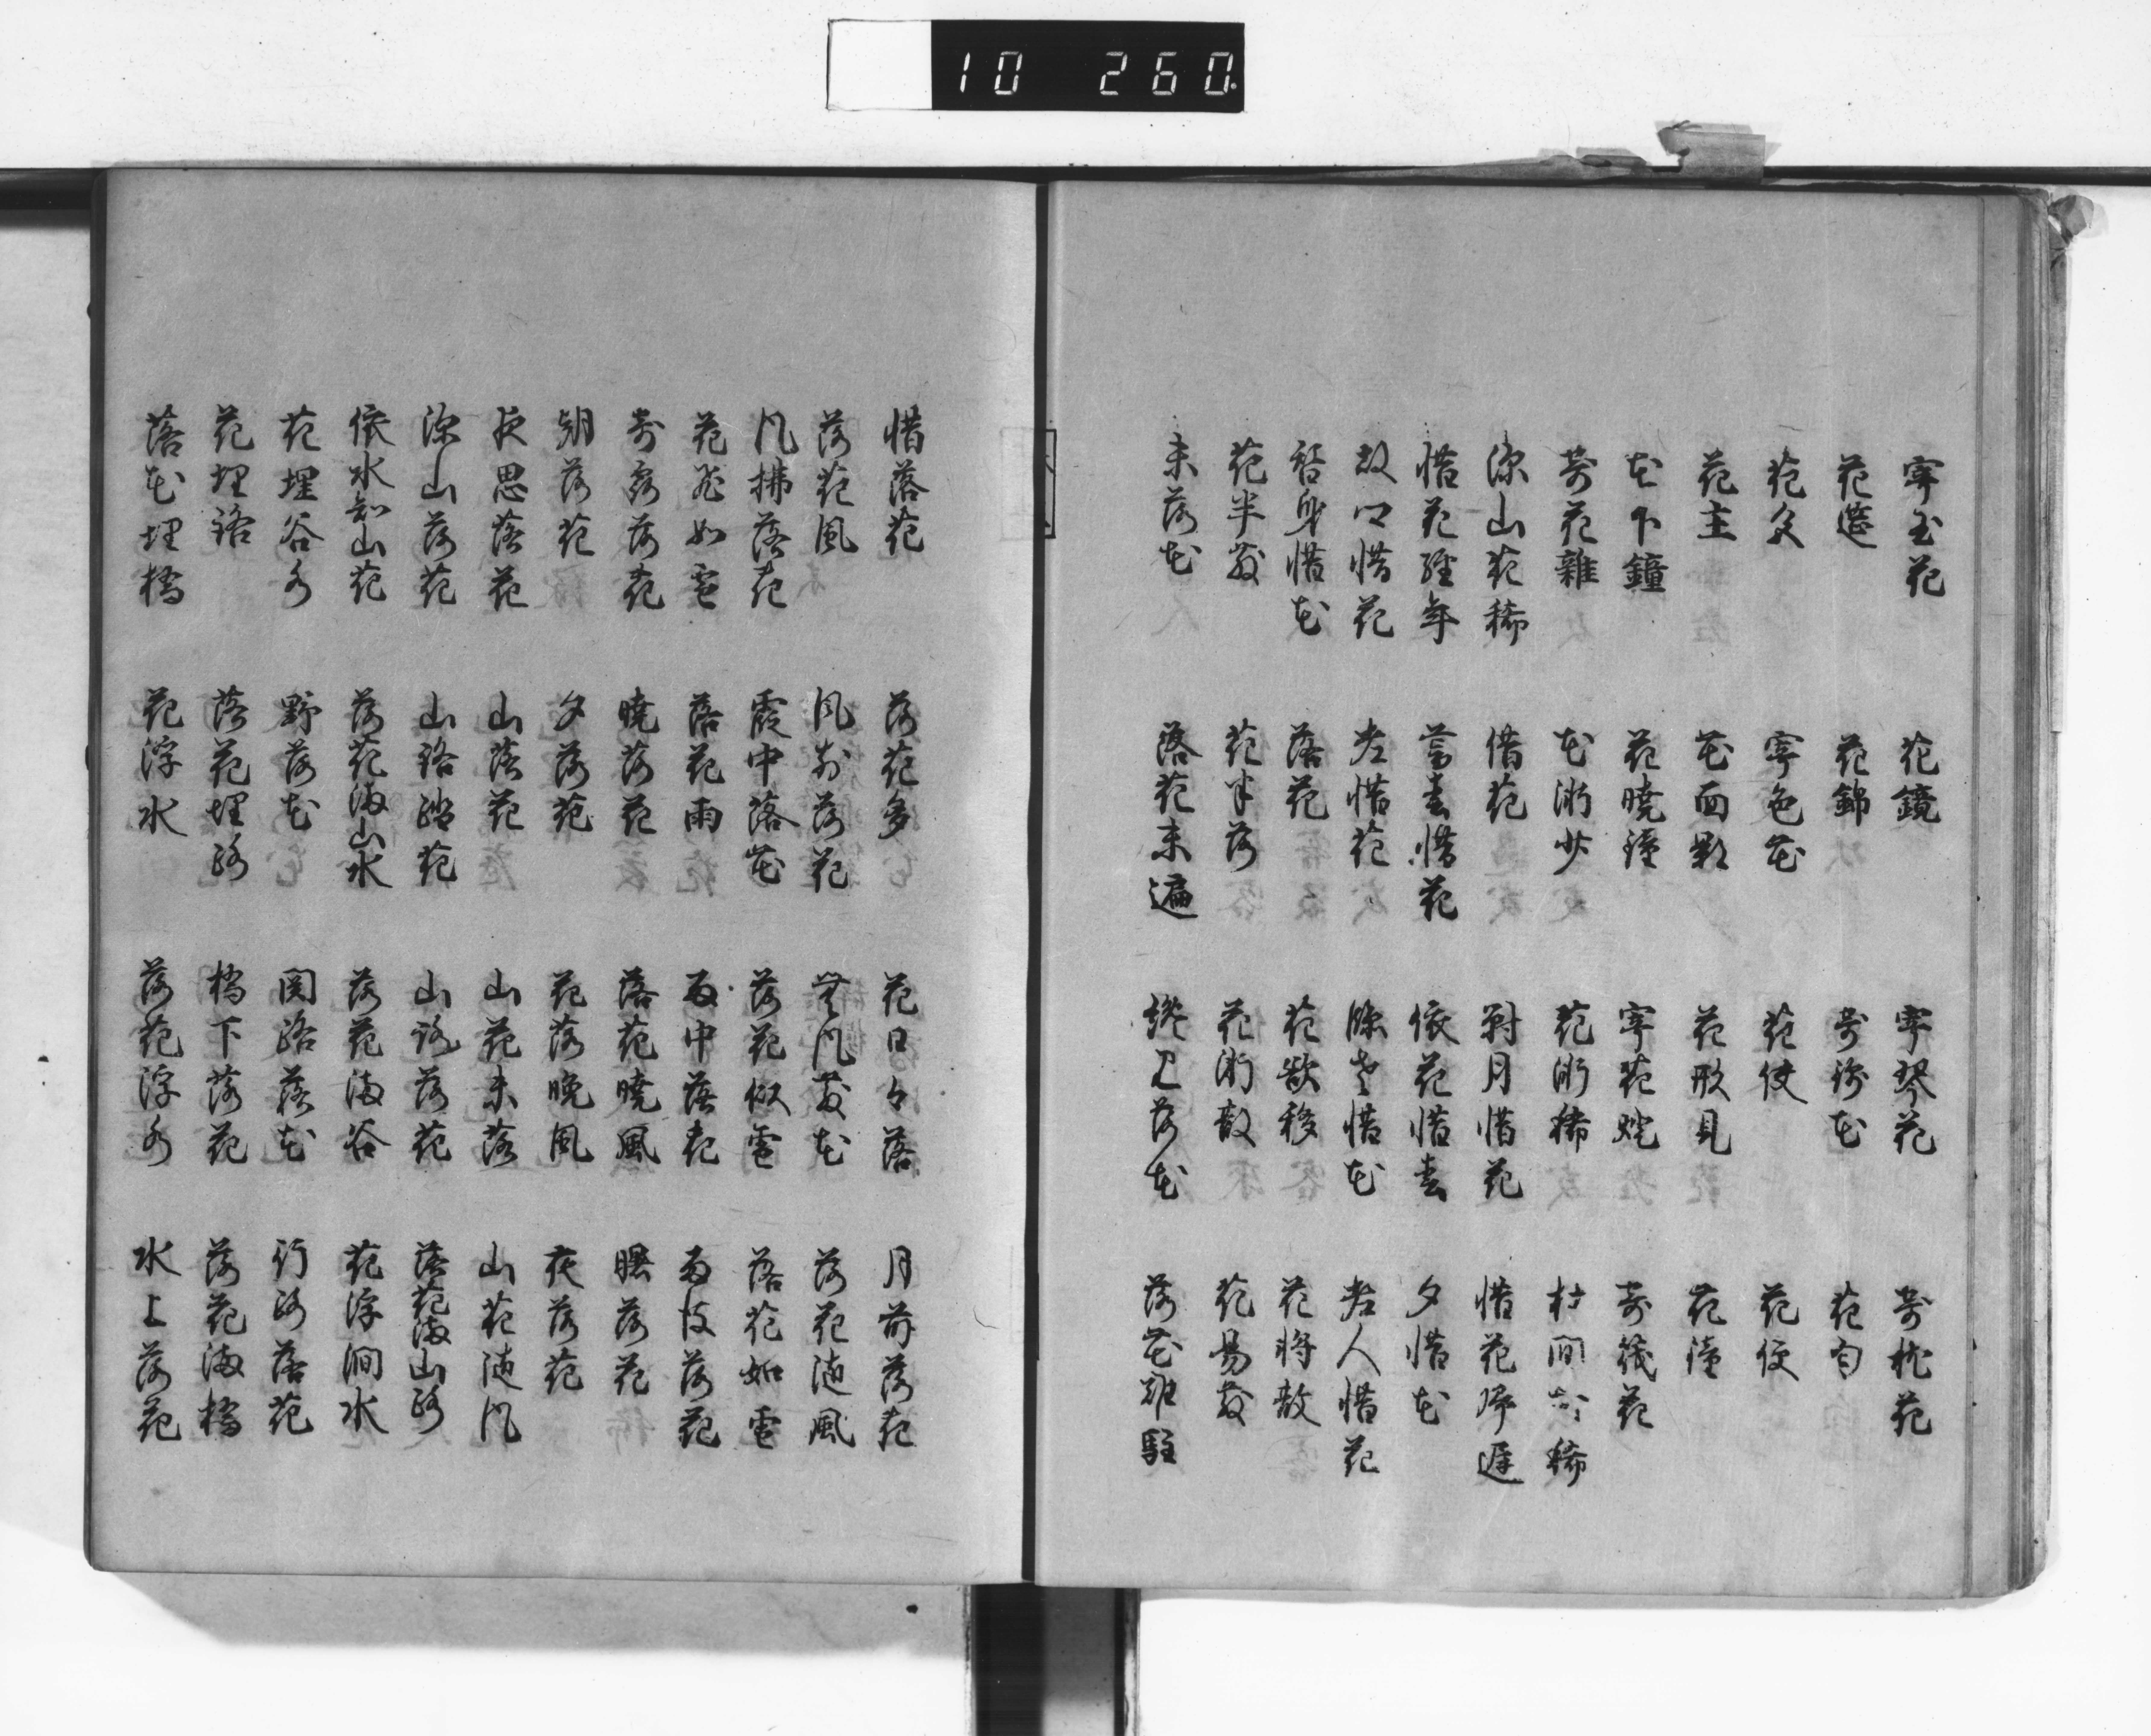 10 260
寄玉花 花鏡 寄琴花 寄枕花
花莚 花錦 寄衣花 花匂
花父 寄色花 花使 花便
花主 花面影 花形見 花鐘
花下鐘 花暁鐘 寄花 寄筏花
寄花雑 花漸少 花漸稀 村間花稀
深山花稀 惜花 対月惜花 惜花帰遅
惜花経年 暮春惜花 依花惜春 夕惜花
故郷惜花 老惜花 惜花 老人惜花
替身惜花 落花 花欲移 花将散
花半散 花半落 花漸散 花易散
未落花 落花未遍 纔見落花 落花難駐
惜落花 落花多 花日々落 月前落花
落花風 風前落花 無風散花 落花随風
風払落花 霞中落花 落花似雪 落花如雪
花飛如雪 落花雨 雨中落花 雨後落花
寄露落花 暁落花 落花暁風 曙落花
朝落花 夕落花 花落晩風 夜落花
夜思落花 山落花 山花未落 山花随風
深山落花 山路踏花 山路落花 落花満山路
依水知山花 落花満山水 落花満谷 花浮澗水
花埋谷水 野落花 関路落花 行路落花
花埋路 落花埋路 橋下落花 落花満橋
落花埋橋 花浮水 落花浮水 水上落花